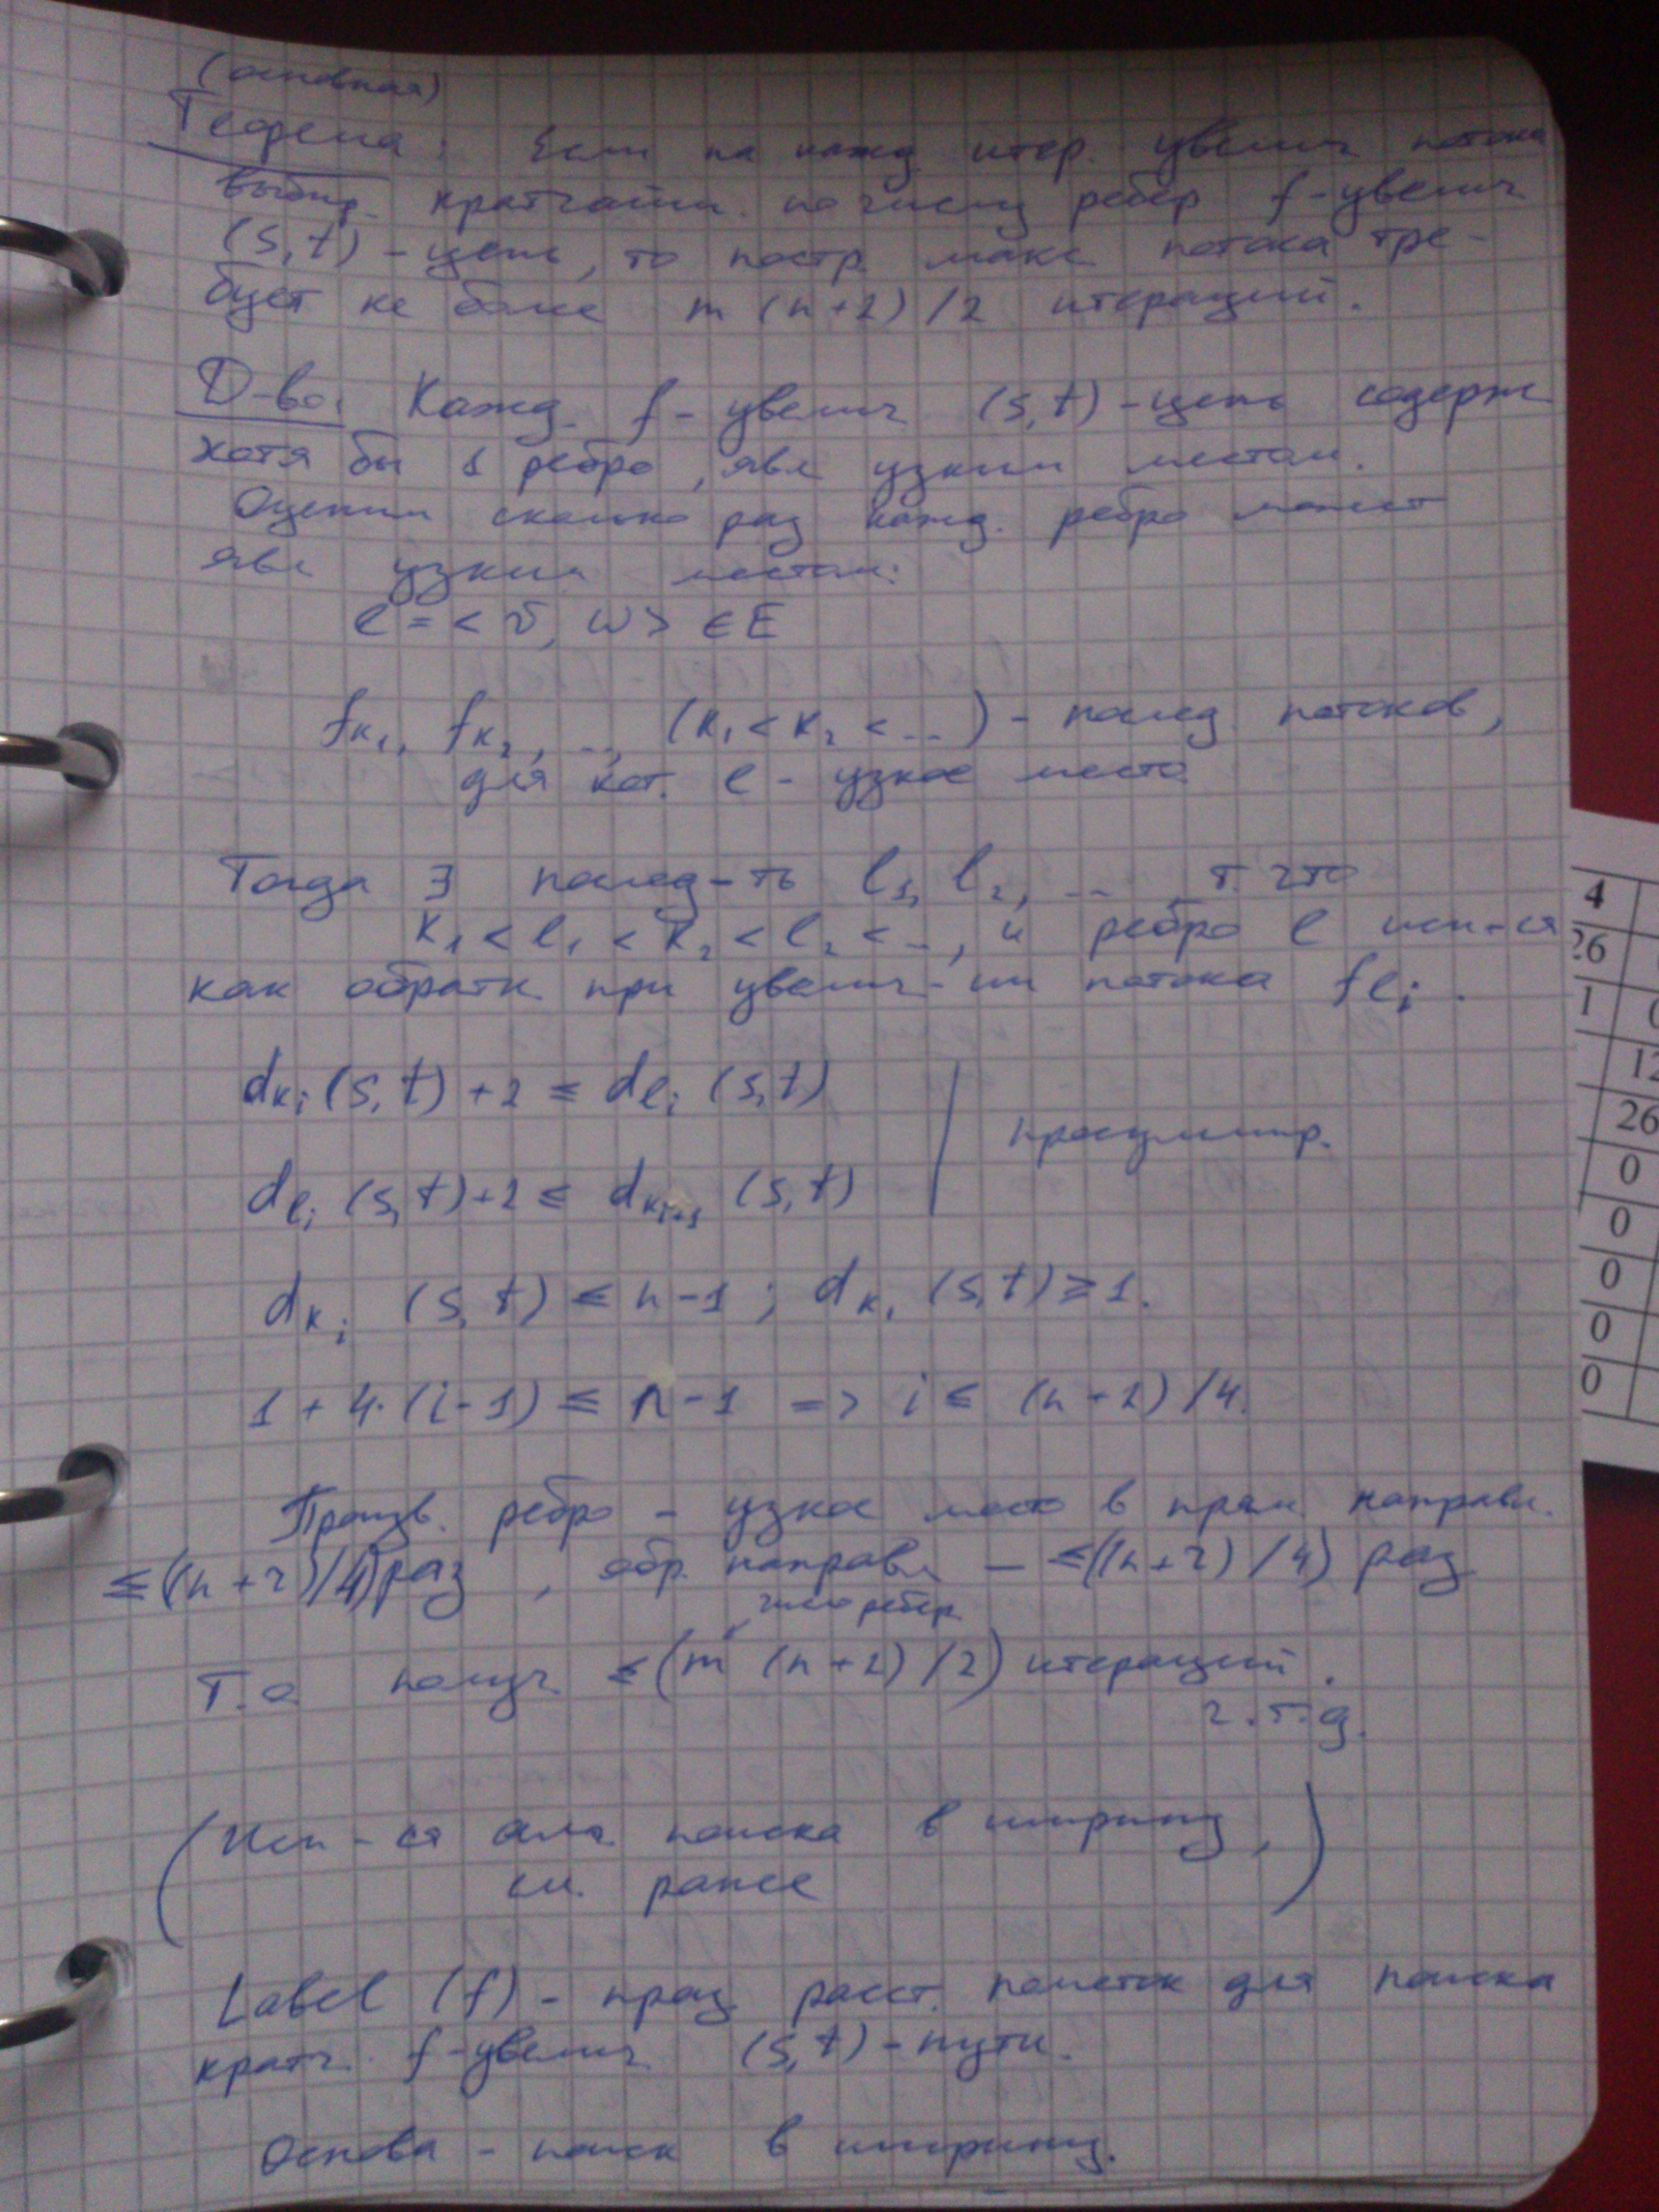 (основная)
Теорема: Если на кажд итер. увелич потока
выбир. кратчайш. по числу ребер f-увелич
(s,t)-цепь, то постр. макс потока тре-
бует не более m(n+2)/2 итераций.
Д-во: Кажд. f-увелич (s,t)-цепь содерж
хотя бы 1 ребро, явл узким местом.
Оценим сколько раз кажд. ребро может
явл узким местом:
e = <v, w> ∈ E
fk₁, fk₂, ..., (k₁ < k₂ < ...) - послед. потоков,
для кот. e - узкое место
Тогда ∃ послед-ть l₁, l₂, ... т. что
k₁ < l₁ < k₂ < l₂ < ..., и ребро e исп-ся
как обратн. при увелич-ии потока flᵢ.
dkᵢ(s,t) + 2 ≤ dlᵢ(s,t)
просуммир.
dlᵢ(s,t) + 2 ≤ dkᵢ₊₁(s,t)
dkᵢ(s,t) ≤ n-1 ; dk₁(s,t) ≥ 1.
1 + 4·(i-1) ≤ n-1 => i ≤ (n+2)/4.
Произв. ребро - узкое место в прям. направл.
≤((n+2)/4) раз, обр. направл - ≤((n+2)/4) раз
число ребер
Т.о. получ. ≤(m(n+2)/2) итераций.
ч.т.д.
(Исп-ся алг. поиска в ширину,
см. ранее)
Label (f) - проц. расст. пометок для поиска
кратч. f-увелич. (s,t)-пути.
Основа - поиск в ширину.
4
26
1
12
26
0
0
0
0
0